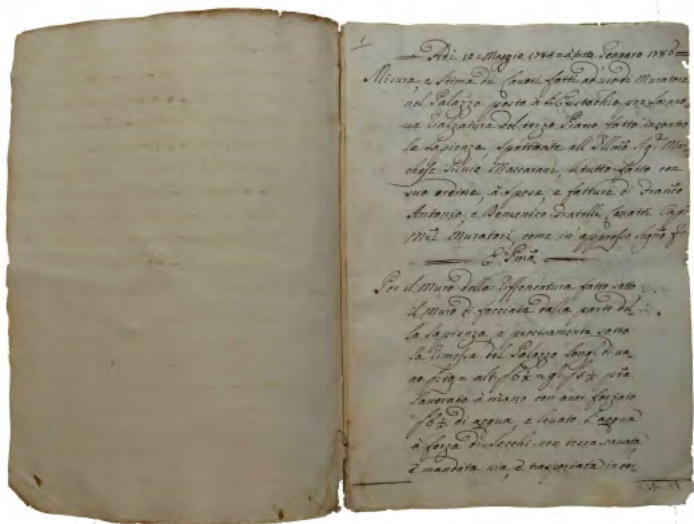 1
Adi 10 = Maggio 1784 = a tutto Gennaro 1786 =
Misura, e Stima de Lavori fatti ad uso di Muratore
nel Palazzo posto à S. Eustachio per la nuo,
va rialzatura del terzo Piano fatto incontro
la Sapienza, Spettante all'Illmo Sigr. Mar,
chese Silvio Maccarani, il tutto fatto con
suo ordine, à Spese, e fatture di Franco
Antonio, e Domenico Fratelli Capi
Mri. Muratori, come in appresso Segue
E Pma.
Per il Muro della Riffoncatura fatto sotto
il Muro di facciata dalla parte del,
la Sapienza, e precisamente sotto
la Rimessa del Palazzo long. di va,
no
lavorato à mano con aver forzato
di acqua, e levato l'acqua
à forza di Secchi con terra cavata,
e mandata via, e trasportata in